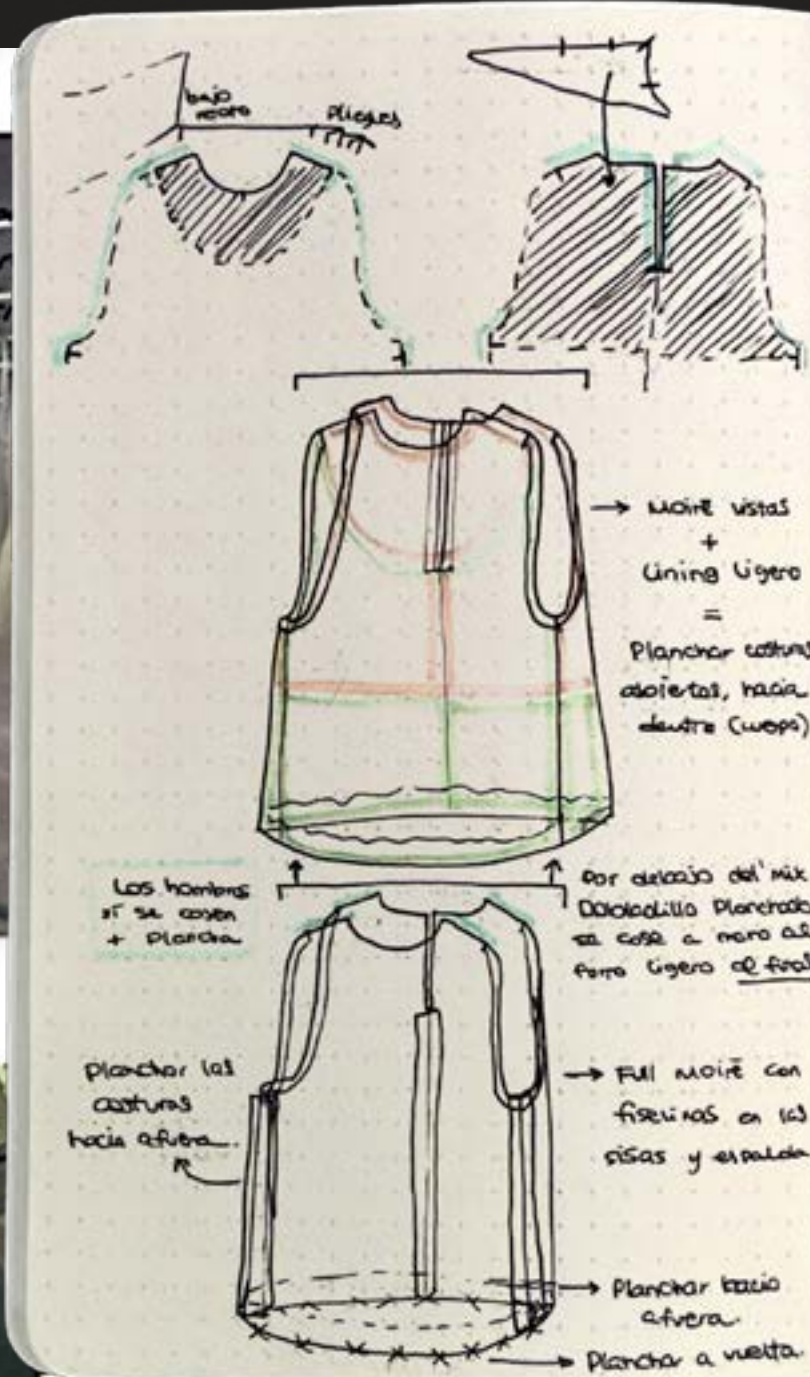 bajo
pliegues
→ Moiré vistas
+
Lining ligero
=
Planchar costuras
abiertas, hacia
dentro (wops)
Los hombros
sí se cosen
+ Plancha
Por debajo del mix
Dobladillo Planchado
se cose a mano al
forro ligero al final
Planchar las
costuras
hacia afuera.
→ Full Moiré con
fiselinas en las
sisas y espalda
→ Planchar hacia
afuera.
→ Planchar a vuelta.